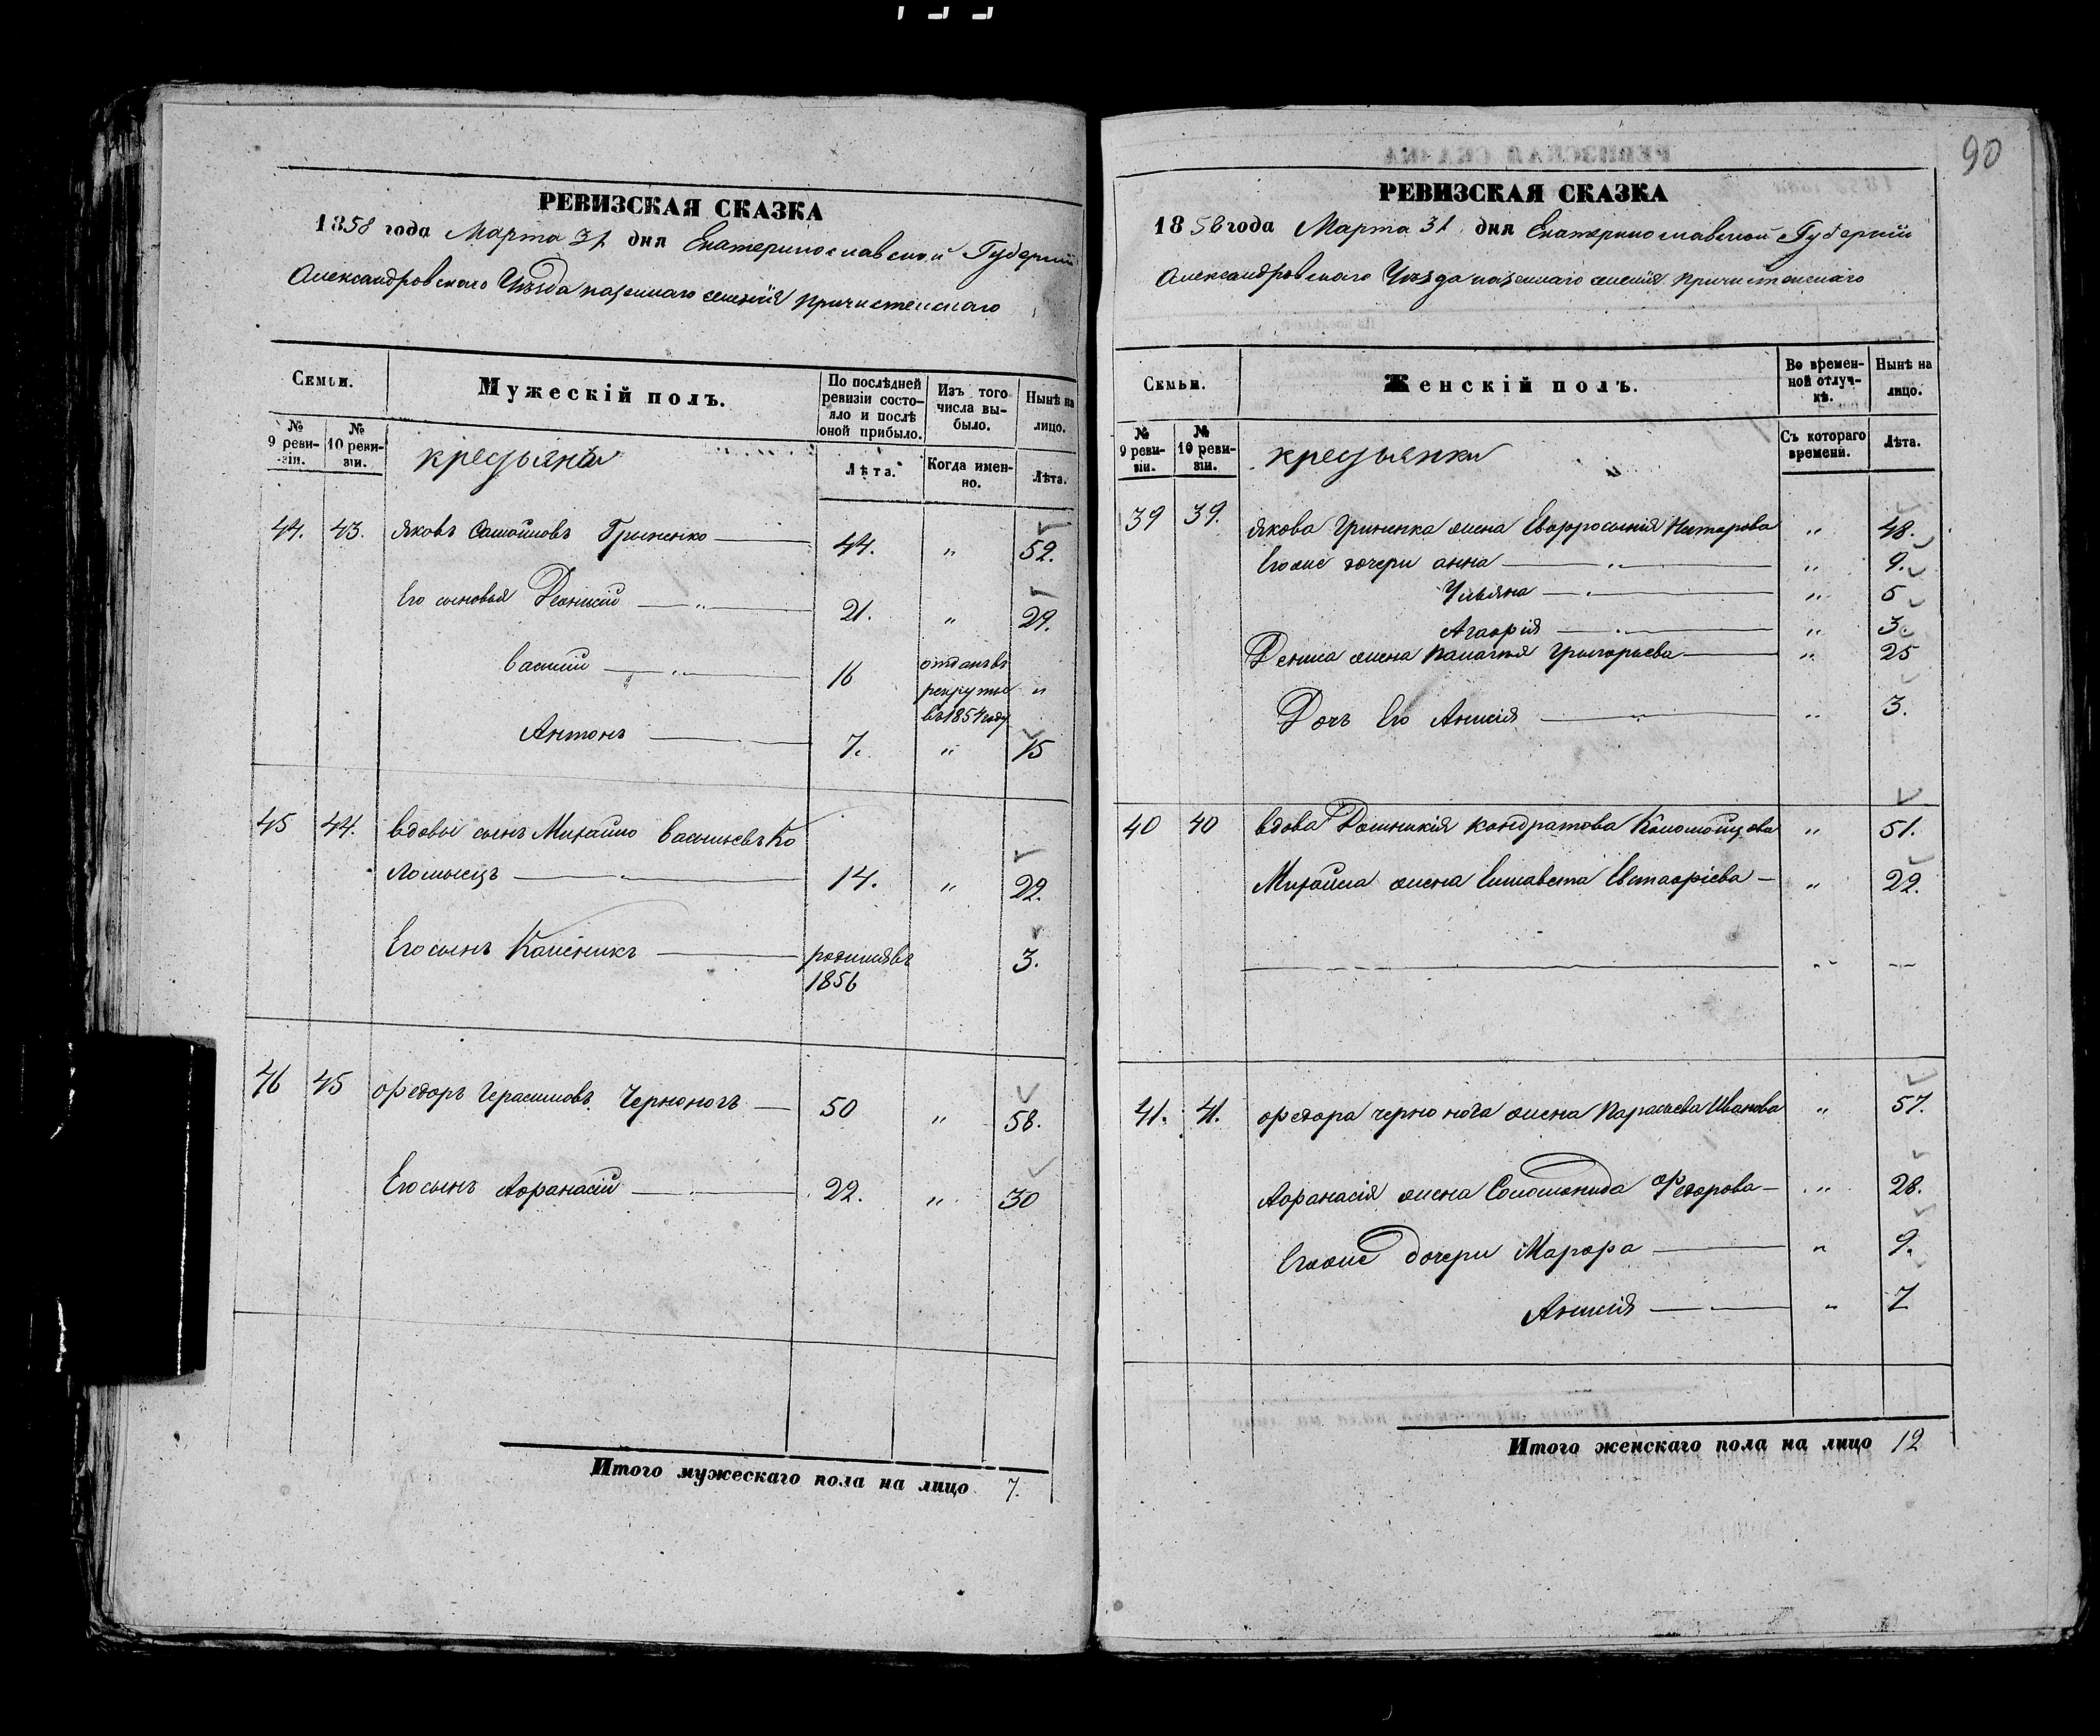 90
РЕВИЗСКАЯ СКАЗКА
1858 года Марта 31 дня Екатеринославской Губернии
Александровскаго Уѣзда казеннаго селенія Причистенскаго
Семьи.
Мужескій полъ.
По послѣдней ревизіи состояло и послѣ оной прибыло.
Изъ того числа выбыло.
Нынѣ на лицо.
№ 9 ревизіи.
№ 10 ревизіи.
крестьяне
Лѣта.
Когда именно.
Лѣта.
44. 43. Яковъ Самойловъ Грыненко 44. " 52.
Его сыновья Деонисій 21. " 29.
Василій 16 отданъ въ рекруты въ 1854 году "
Антонъ 7. " 15
45 44. вдовы сынъ Михайло Васильевъ Ко
ломыецъ 14. " 22.
Его сынъ Калѣникъ родился въ 1856 3.
46 45 Федоръ Герасимовъ Черноногъ 50 " 58.
Его сынъ Афанасій 22. " 30
Итого мужескаго пола на лицо 7.
РЕВИЗСКАЯ СКАЗКА
1858 года Марта 31 дня Екатеринославской Губерніи
Александровскаго Уѣзда казеннаго селенія Причистенскаго
Семьи.
Женскій полъ.
Во временной отлучкѣ.
Нынѣ на лицо.
№ 9 ревизіи.
№ 10 ревизіи.
крестьянки
Съ котораго времени.
Лѣта.
39 39. Якова Гриненка жена Евфросынія Нестерова " 48.
Его же дочери Анна " 9.
Ульяна " 5
Агафія " 3
Дениса жена Палагея Григорьева " 25
Дочъ Его Анисія " 3.
40 40 вдова Домникія Кондратова Коломойцова " 51.
Михайла жена Елисавета Евстафіева " 22.
41. 41. Федора Черно нога жена Парасьева Иванова " 57.
Афанасія жена Соломонида Федорова " 28.
Его же дочери Марфа " 9.
Анисія " 7
Итого женскаго пола на лицо 12